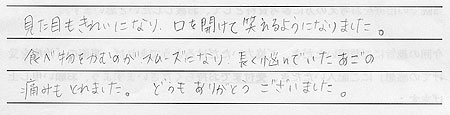 見た目もきれいになり、口を開けて笑えるようになりました。
食べ物をかむのがスムーズになり 長く悩んでいたあごの
痛みもとれました。 どうもありがとうございました。